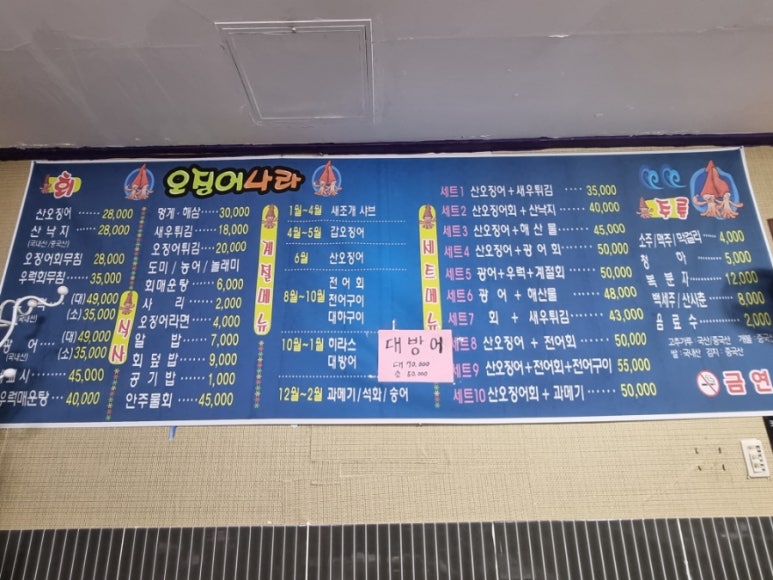 회
오징어나라
산오징어 ······ 28,000
산 낙 지 ······ 28,000
(국내산/중국산)
오징어회무침 28,000
우럭회무침 ···· 35,000
(대) 49,000
(국내산) (소) 35,000
어 (대) 49,000
(국내산) (소) 35,000
45,000
우럭매운탕 ··· 40,000
멍게·해삼 ···· 30,000
새우튀김 ······ 18,000
오징어튀김 ··· 20,000
도미/농어/놀래미
회매운탕 ······ 6,000
식사
사 리 ······ 2,000
오징어라면 ··· 4,000
알 밥 ······ 7,000
회 덮 밥 ······ 9,000
공 기 밥 ······ 1,000
안주물회 ···· 45,000
계절메뉴
1월~4월 새조개 샤브
4월~5월 갑오징어
6월 산오징어
8월~10월 전 어 회
전어구이
대하구이
10월~1월 이라스
대방어
12월~2월 과메기/석화/숭어
대방어
대 70,000
소 50,000
세트메뉴
세트1 산오징어+새우튀김 ······ 35,000
세트2 산오징어회+산낙지 ······ 40,000
세트3 산오징어+해 산 물 ······ 45,000
세트4 산오징어+광 어 회 ······ 50,000
세트5 광어+우럭+계절회 ······ 50,000
세트6 광 어 + 해산물 ······ 48,000
세트7 회 + 새우튀김 ······ 43,000
세트8 산오징어 + 전어회 ······ 50,000
세트9 산오징어+전어회+전어구이 55,000
세트10 산오징어회+과메기 ······ 50,000
주류
소주/맥주/막걸리 ··· 4,000
청 하 ······ 5,000
복 분 자 ······ 12,000
백세주/산사춘 ······ 8,000
음 료 수 ······ 2,000
고추가루 : 국산/중국산
쌀 : 국내산 김치 : 중국산
금 연